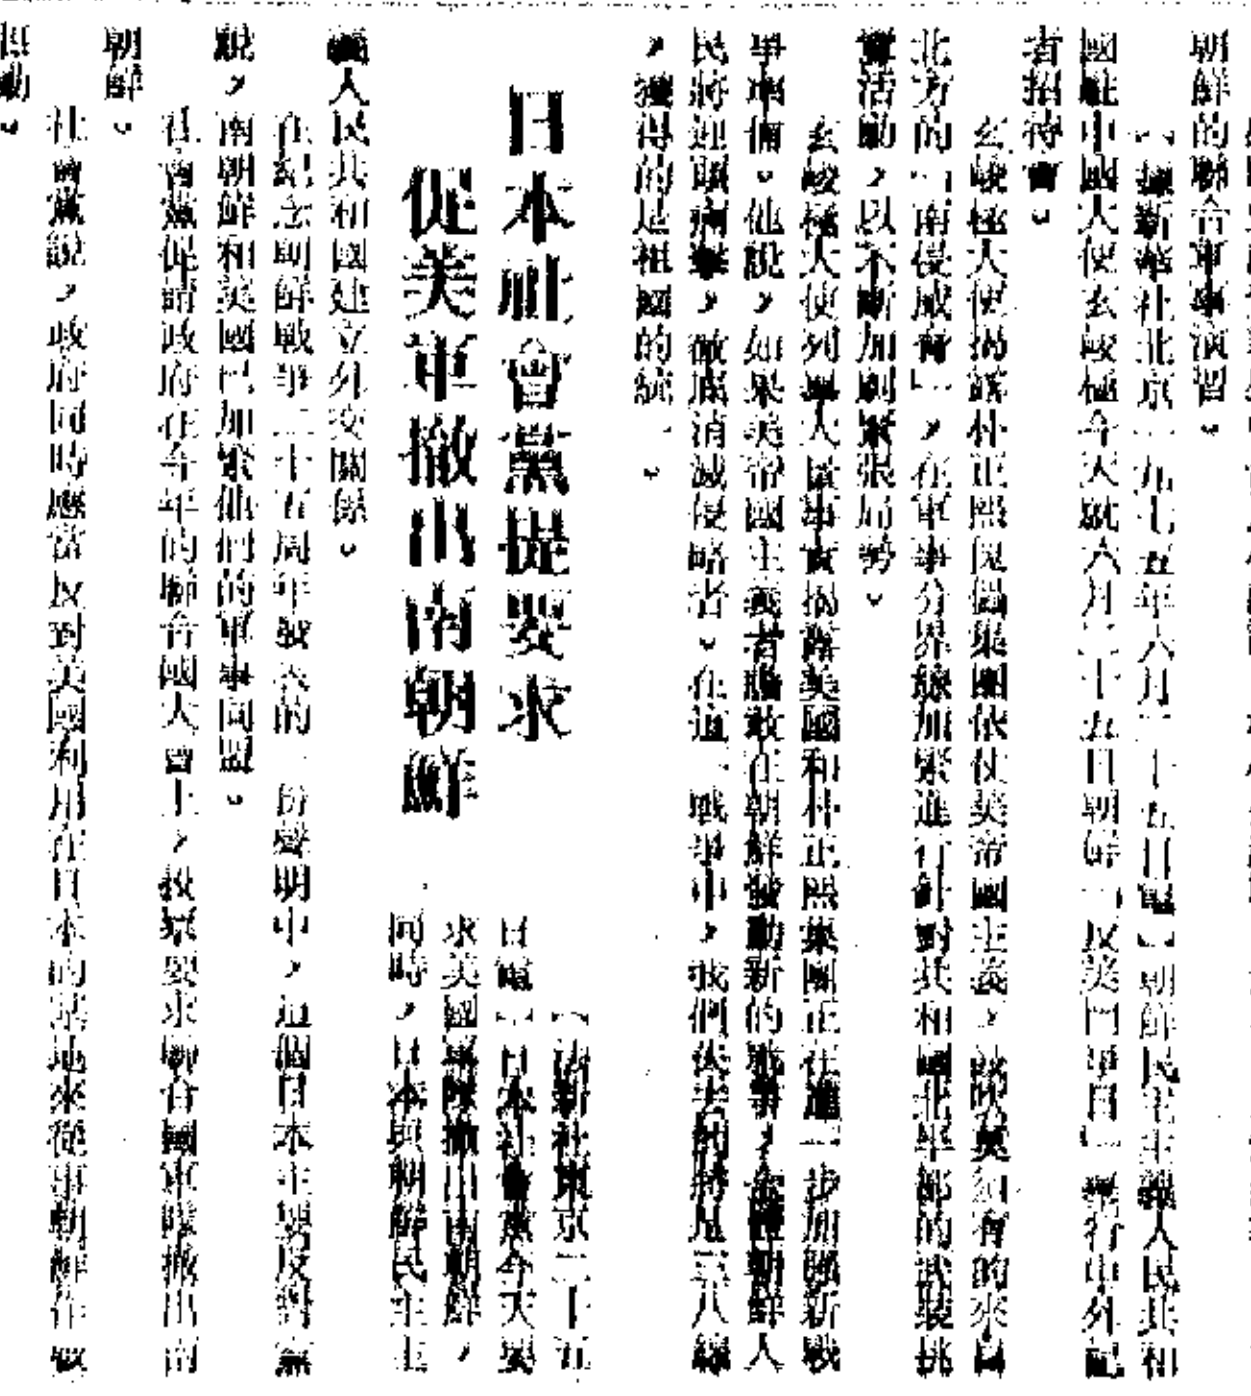 朝鮮的聯合軍事演習。
【據新華社北京一九七五年六月二十五日電】朝鮮民主主義人民共和
國駐中國大使玄峻極今天就六月二十五日朝鮮「反美鬥爭日」舉行中外記
者招待會。
玄峻極大使揭露朴正熙傀儡集團依仗美帝國主義,
北方的「南侵威脅」,在軍事分界線加緊進行針對共和國北半部的武裝挑
釁活動,以不斷加劇緊張局勢。
玄峻極大使列舉大量事實揭露美國和朴正熙集團正在進一步加強新戰
爭準備。他說,如果美帝國主義者膽敢在朝鮮發動新的戰爭,全體朝鮮人
民將迎頭痛擊,徹底消滅侵略者。在這一戰爭中,我們失去的將是三八線
,獲得的是祖國的統一。
日本社會黨提要求
促美軍撤出南朝鮮
【法新社東京二十五
日電】日本社會黨今天要
求美國軍隊撤出南朝鮮,
同時,日本與朝鮮民主主
義人民共和國建立外交關係。
在紀念朝鮮戰爭二十五周年發表的一份聲明中,這個日本主要反對黨
說,南朝鮮和美國已加緊他們的軍事同盟。
社會黨促請政府在今年的聯合國大會上,投票要求聯合國軍隊撤出南
朝鮮。
社會黨說,政府同時應當反對美國利用在日本的基地來從事朝鮮作戰
行動。